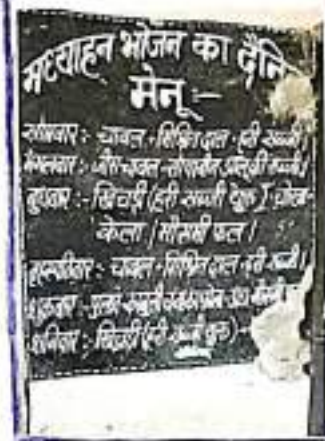 मध्याहन भोजन का दैनि
मेनू :-
सोमवार :- चावल - मिश्रित दाल - हरी सब्जी।
मंगलवार :- चावल - सोयाबीन आलू की सब्जी।
बुधवार :- खिचड़ी (हरी सब्जी युक्त) चोखा -
केला / मौसमी फल।
बृहस्पतिवार :- चावल - मिश्रित दाल - हरी सब्जी।
शुक्रवार :- पुलाव काबुली
शनिवार :- खिचड़ी (हरी सब्जी युक्त) -